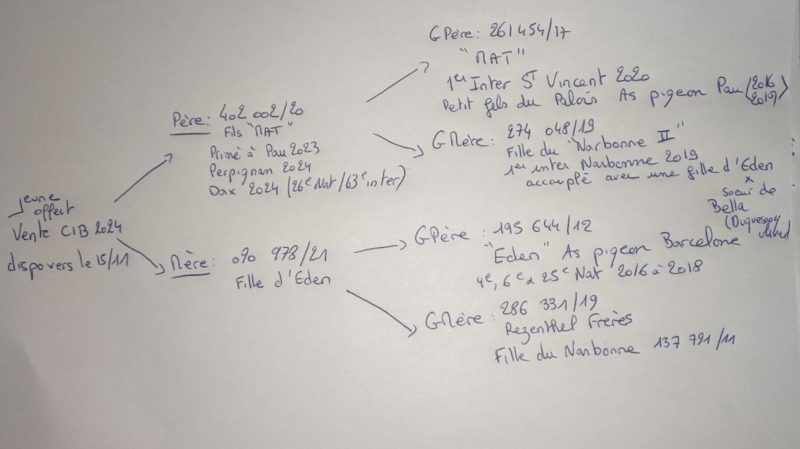 jeune
offert
Vente CIB 2024
dispo vers le 15/11
Père: 402 002/20
Fils "NAT"
Primé à Pau 2023
Perpignan 2024
Dax 2024 (26e Nat/63e inter)
Mère: 090 978/21
Fille d'Eden
GPère: 261 454/17
"NAT"
1er Inter St Vincent 2020
Petit fils du Palois As pigeon Pau (2016
2019)
GMère: 274 048/19
Fille du "Narbonne II"
1er inter Narbonne 2019
accouplé avec une fille d'Eden
x
soeur de
Bella
(Duquesnoy
GPère: 195 644/12
"Eden" As pigeon Barcelone
4e, 6e 25e Nat 2016 à 2018
GMère: 286 331/19
Rezenthel Frères
Fille du Narbonne 137 791/11